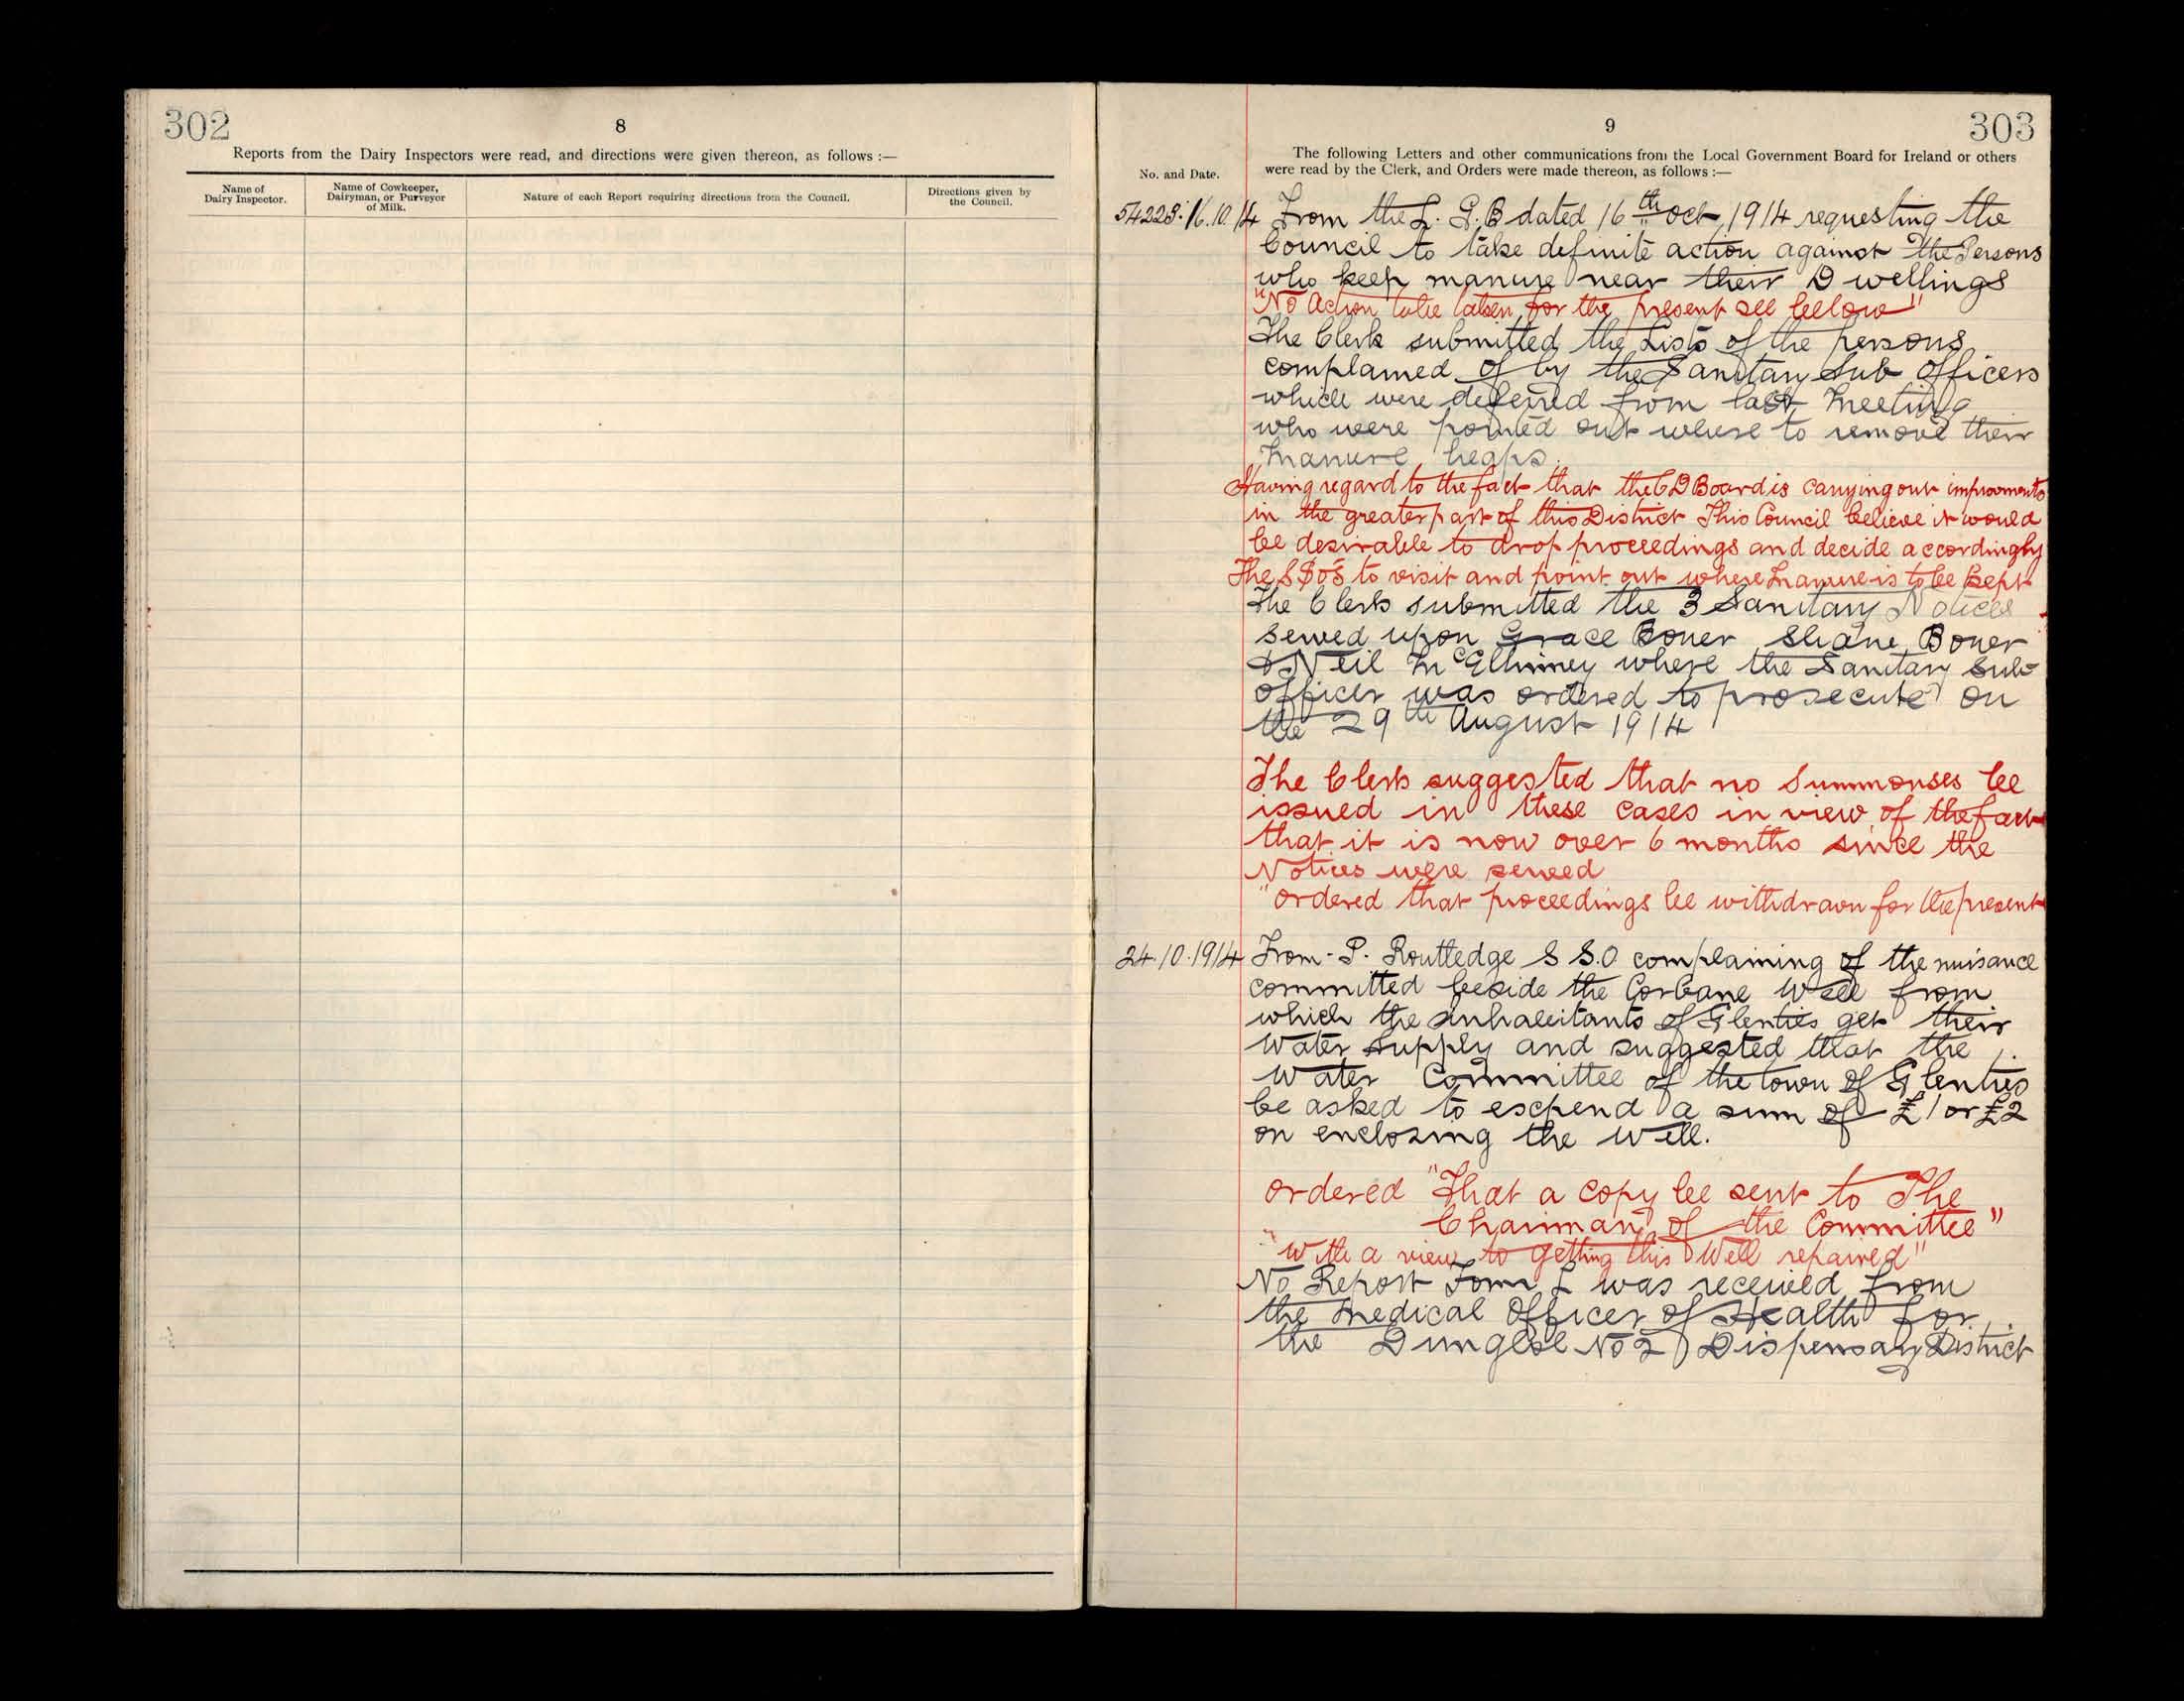 302
8
Reports from the Dairy Inspectors were read, and directions were given thereon, as follows :—
Name of Dairy Inspector.
Name of Cowkeeper, Dairyman, or Purveyor of Milk.
Nature of each Report requiring directions from the Council.
Directions given by the Council.
9
303
The following Letters and other communications from the Local Government Board for Ireland or others
No. and Date.
were read by the Clerk, and Orders were made thereon, as follows :—
54228. 16.10.14 From the L. G. B dated 16th oct, 1914 requesting the
Council to take definite action against the Persons
who keep manure near their Dwellings
"No Action to be taken for the present see bellow"
The Clerk submitted the Lists of the persons
complained of by the Sanitary Sub Officers
which were deferred from last Meeting
who were pointed out where to remove their
Manure heaps.
Having regard to the fact that the C D Board is carrying out improvments
in the greater part of this District This Council believe it would
be desirable to drop proceedings and decide accordingly
The S S O's to visit and point out where Manure is to be kept
The Clerk submitted the 3 Sanitary Notices
served upon Grace Boner Shane Boner
& Neil McElhinney where the Sanitary Sub
officer was ordered to prosecute on
the 29th August 1914
The Clerk suggested that no Summonses be
issued in these cases in view of the fact
that it is now over 6 months since the
Notices were served
"ordered that proceedings be withdrawn for the present
24.10.1914 From P. Routledge S S.O complaining of the nuisance
committed beside the Well from
which the inhabitants of Glenties get their
Water supply and suggested that the
Water Committee of the town of Glenties
be asked to expend a sum of £1 or £2
on enclosing the Well.
ordered "That a copy be sent to The
Chairman of the Committee"
"With a view to getting this Well repaired"
No Report Form L was received from
the Medical Officer of Health for
the Dungloe No 2 Dispensary District